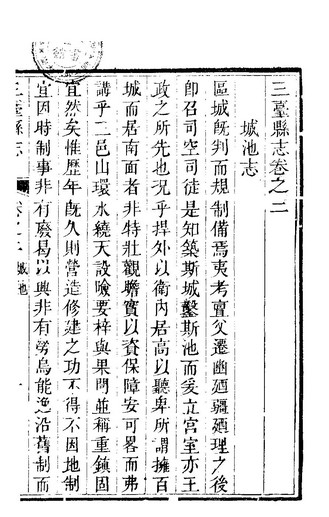 三臺縣志卷之二
城池志
區域旣判而規制備焉夷考亶父遷豳廼疆廼理之後
卽召司空司徒是知築斯城鑿斯池而爰立宮室亦王
政之所先也况乎捍外以衞內居高以聽卑所謂擁百
城而居南面者非特壯觀瞻實以資保障安可畧而弗
講乎二邑山環水繞天設險要梓與果閬並稱重鎮固
宜然矣惟歷年旣久則營造修建之功不得不因地制
宜因時制事非有廢曷以興非有勞烏能逸沿舊制而
三臺縣志 卷之二 城池 一